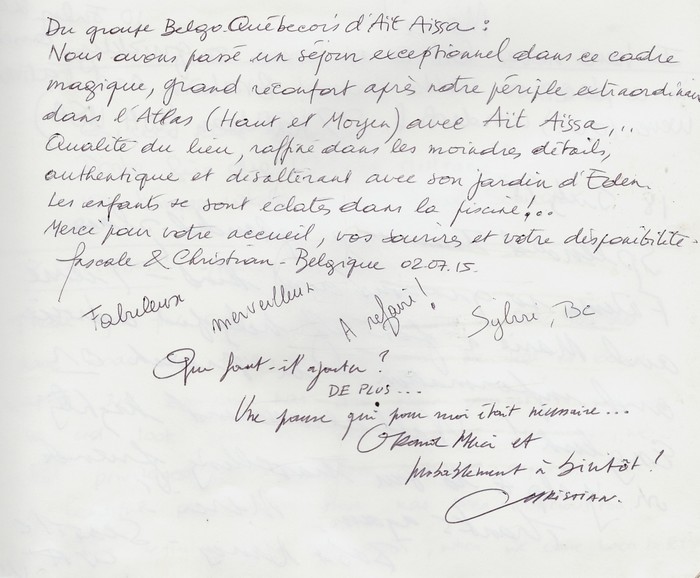 Du groupe Belgo-Québecois d'Aït Aïssa :
Nous avons passé un séjour exceptionnel dans ce cadre
magique, grand réconfort après notre périple extraordinaire
dans l'Atlas (Haut et Moyen) avec Aït Aïssa,..
Qualité du lieu, raffiné dans les moindres détails,
authentique et désaltérant avec son jardin d'Eden.
Les enfants se sont éclatés dans la piscine!..
Merci pour votre accueil, vos sourires et votre disponibilité.
Pascale & Christian - Belgique 02.07.15.
Fabuleux merveilleux A refaire! Sylvie, BC
Que faut-il ajouter ?
DE PLUS...
Une pause qui pour moi était nécessaire...
Grand Merci et
probablement à bientôt !
CHRISTIAN.